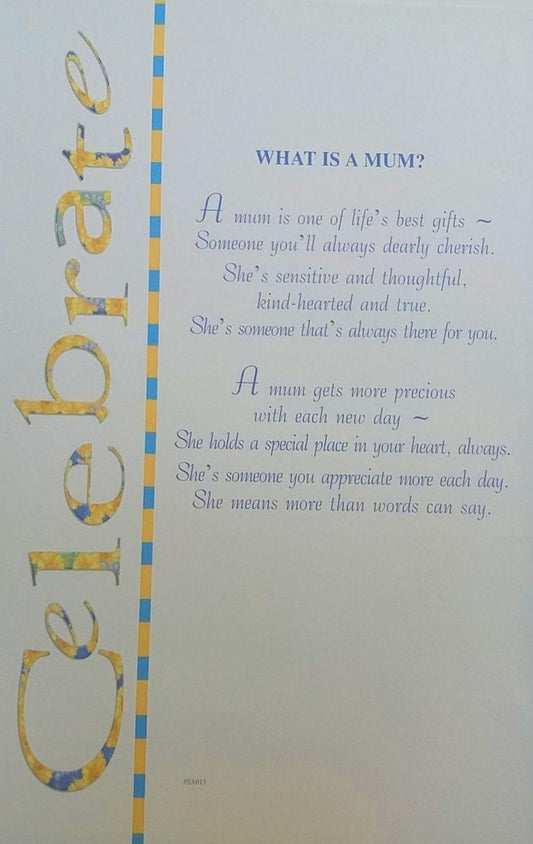 Celebrate
WHAT IS A MUM?
A mum is one of life's best gifts ~
Someone you'll always dearly cherish.
She's sensitive and thoughtful,
kind-hearted and true.
She's someone that's always there for you.
A mum gets more precious
with each new day ~
She holds a special place in your heart, always.
She's someone you appreciate more each day.
She means more than words can say.
#SA015